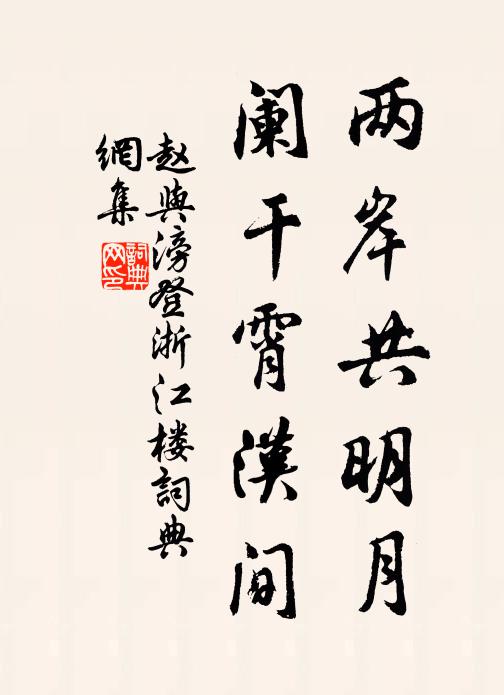 两岸共明月
阑干霄汉间
赵与滂登浙江楼词典
網集
詞典
网印